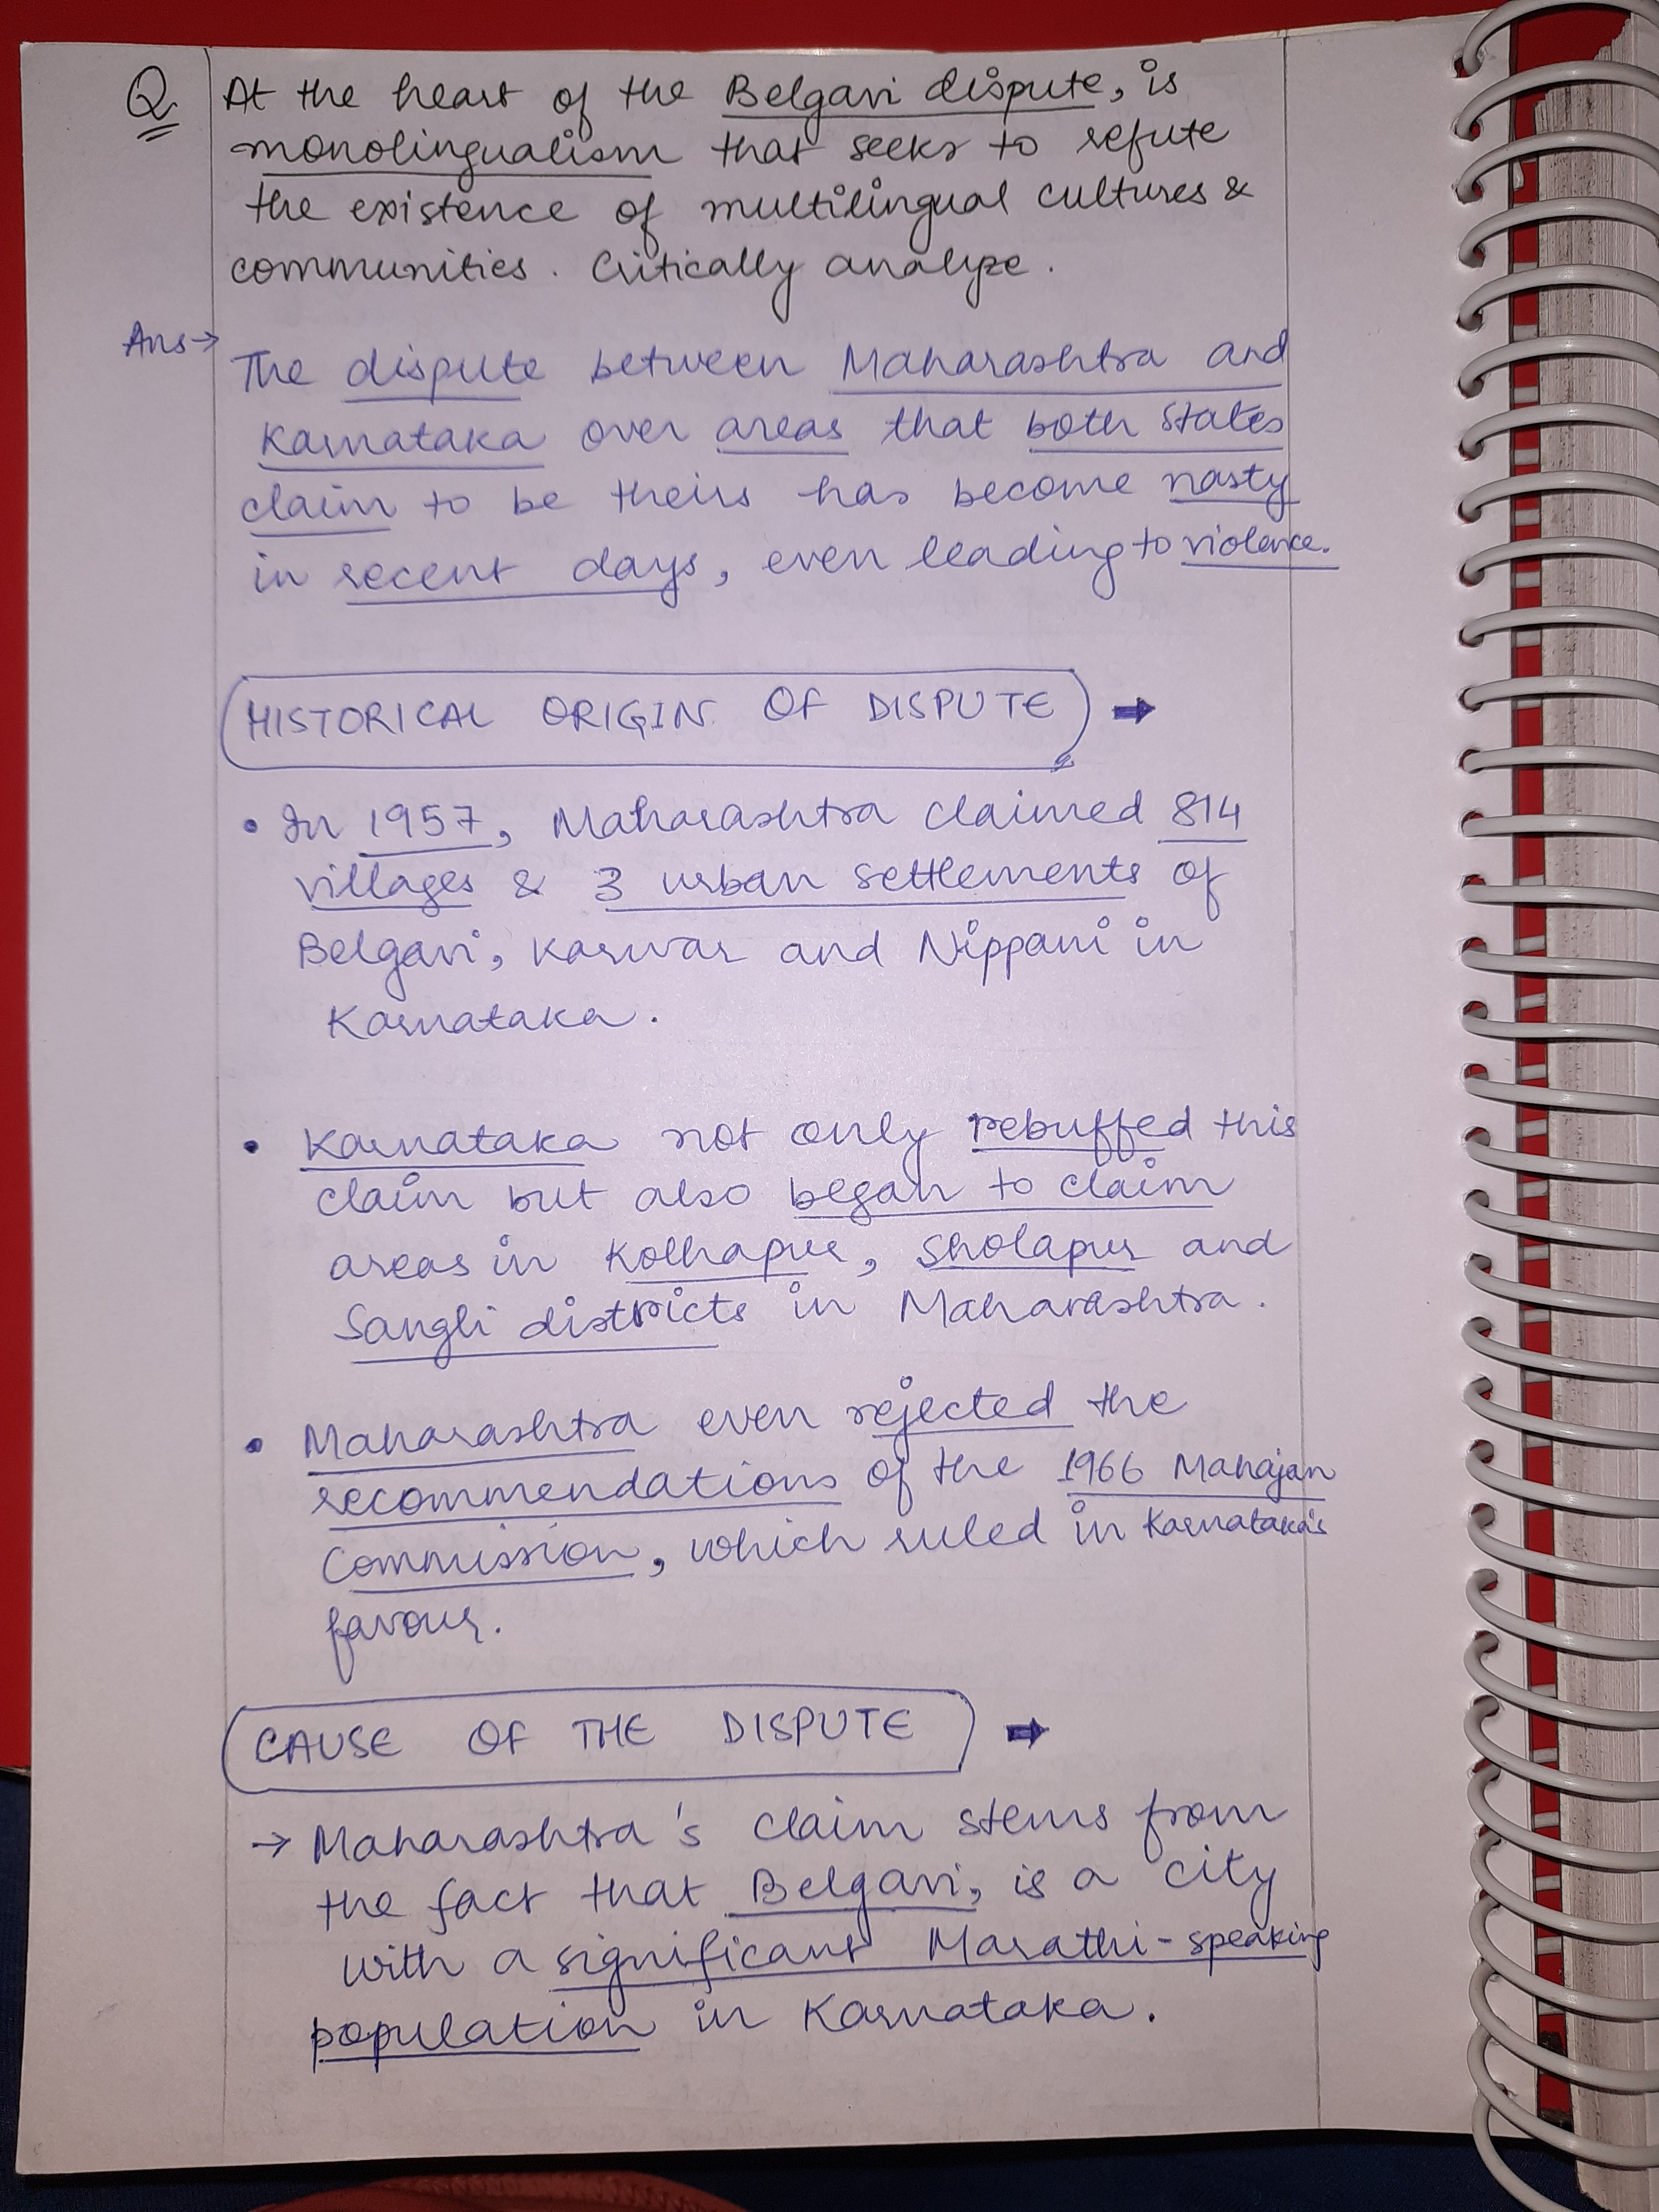 Q At the heart of the Belgavi dispute, is
monolingualism that seeks to refute
the existence of multilingual cultures &
communities. Critically analyze.
Ans → The dispute between Maharashtra and
Karnataka over areas that both states
claim to be theirs has become nasty
in recent days, even leading to violence.
HISTORICAL ORIGIN OF DISPUTE →
• In 1957, Maharashtra claimed 814
villages & 3 urban settlements of
Belgavi, Karwar and Nippani in
Karnataka.
• Karnataka not only rebuffed this
claim but also began to claim
areas in Kolhapur, Sholapur and
Sangli districts in Maharashtra.
• Maharashtra even rejected the
recommendations of the 1966 Mahajan
Commission, which ruled in Karnataka's
favour.
CAUSE OF THE DISPUTE →
→ Maharashtra's claim stems from
the fact that Belgavi, is a city
with a significant Marathi-speaking
population in Karnataka.